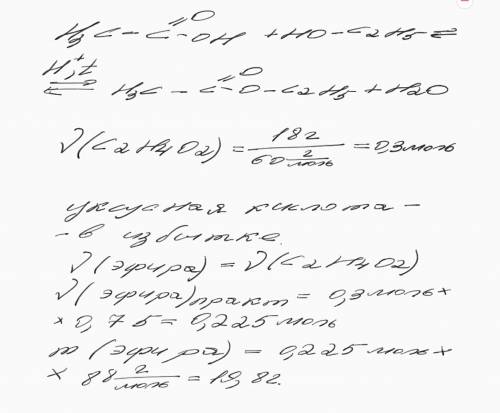 H₃C – C(=O)OH + HO – C₂H₅ ⇄
H⁺,t
⇄ H₃C – C(=O)O – C₂H₅ + H₂O
ν(C₂H₄O₂) = 18г / 60 г/моль = 0,3 моль
уксусная кислота –
– в избытке.
ν(эфира) = ν(C₂H₄O₂)
ν(эфира)практ = 0,3 моль ×
× 0,75 = 0,225 моль
m (эфира) = 0,225 моль ×
× 88 г/моль = 19,8г.